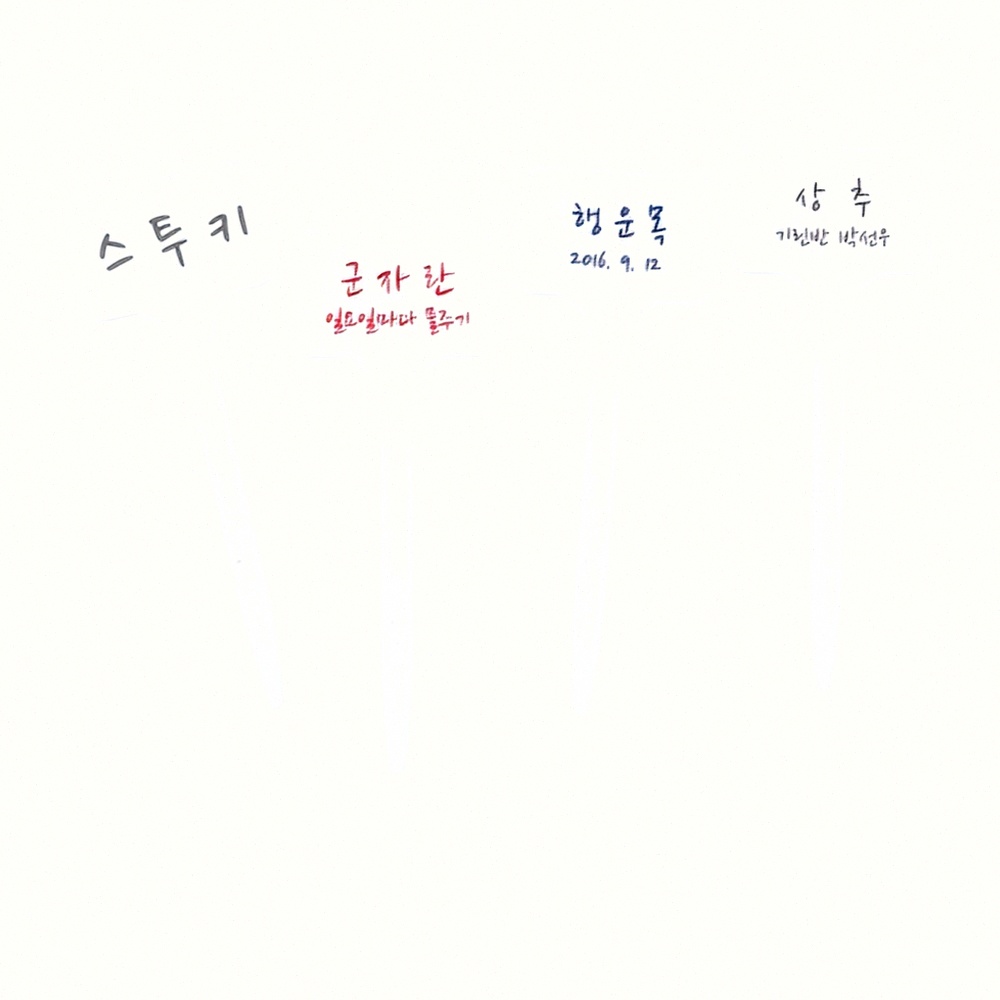 스투키
군자란
일요일마다 물주기
행운목
2016. 9. 12
상추
기린반 박선우